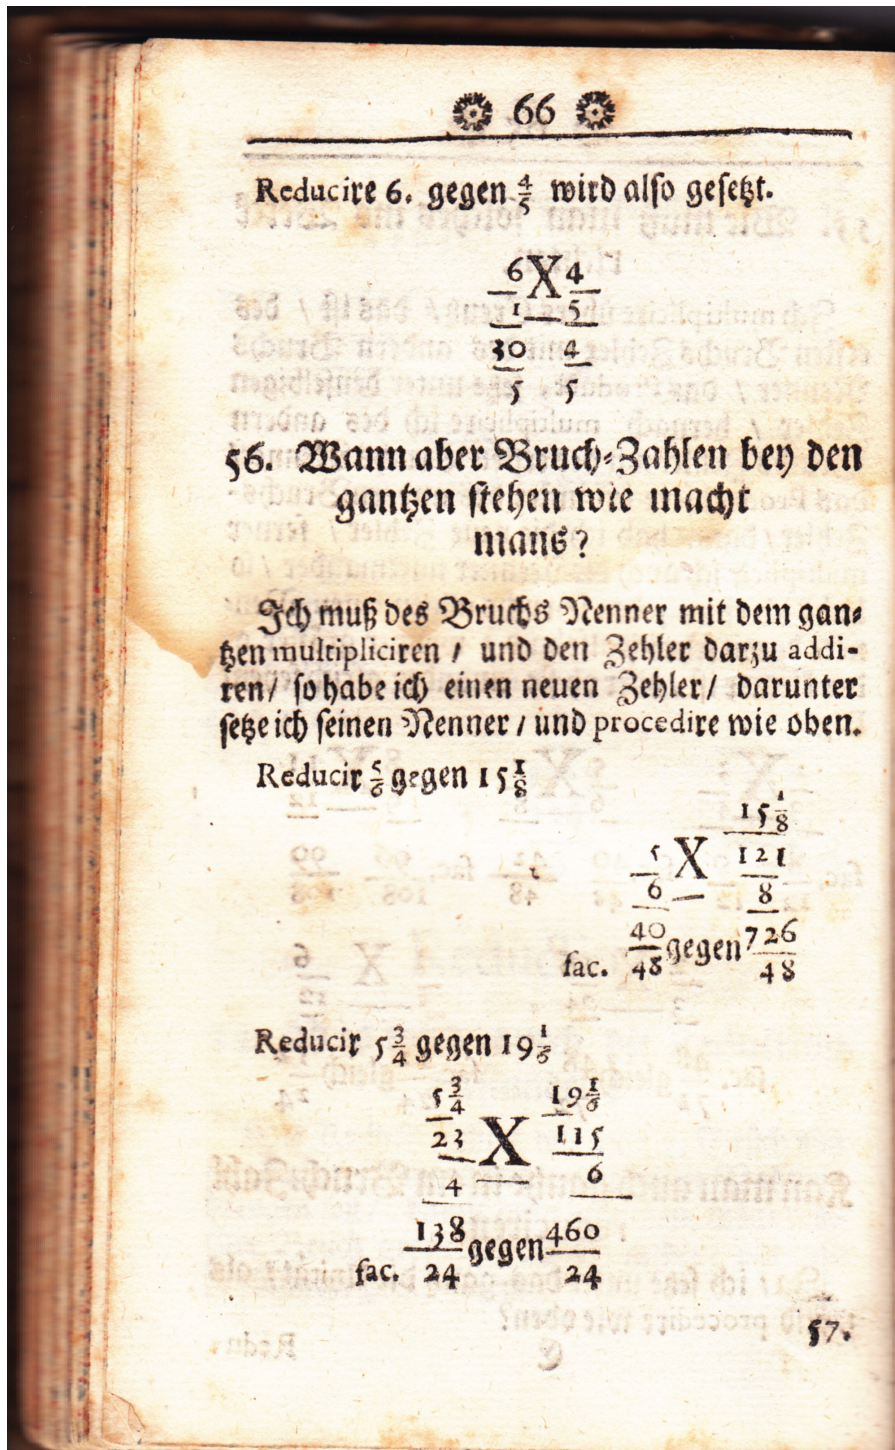 66
Reducire 6. gegen 4/5 wird also gesetzt.
6 X 4
1 5
30 4
5 5
56. Wann aber Bruch-Zahlen bey den
gantzen stehen wie macht
mans?
Ich muß des Bruchs Nenner mit dem gan-
tzen multipliciren / und den Zehler darzu addi-
ren / so habe ich einen neuen Zehler / darunter
setze ich seinen Nenner / und procedire wie oben.
Reducir 5/6 gegen 15 1/8
15 1/8
5 X 121
6 8
fac. 40/48 gegen 726/48
Reducir 5 3/4 gegen 19 1/6
5 3/4 19 1/6
23 X 115
4 6
fac. 138/24 gegen 460/24
57.